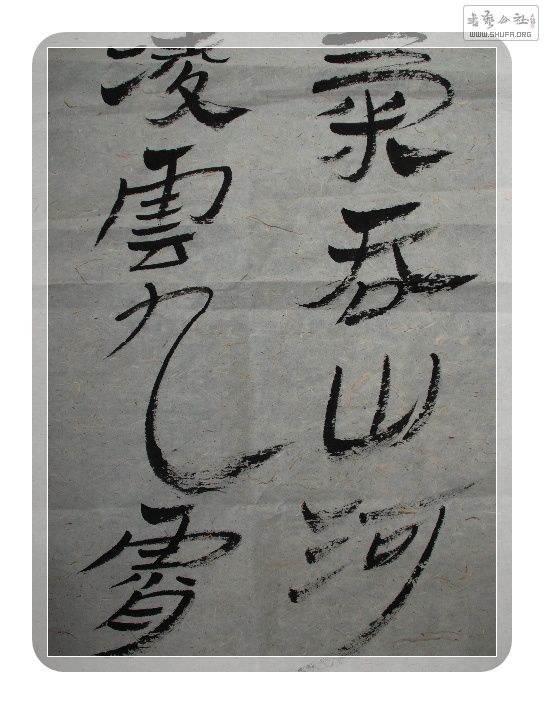 氣吞山河
凌雲九霄
书艺公社
WWW.SHUFA.ORG